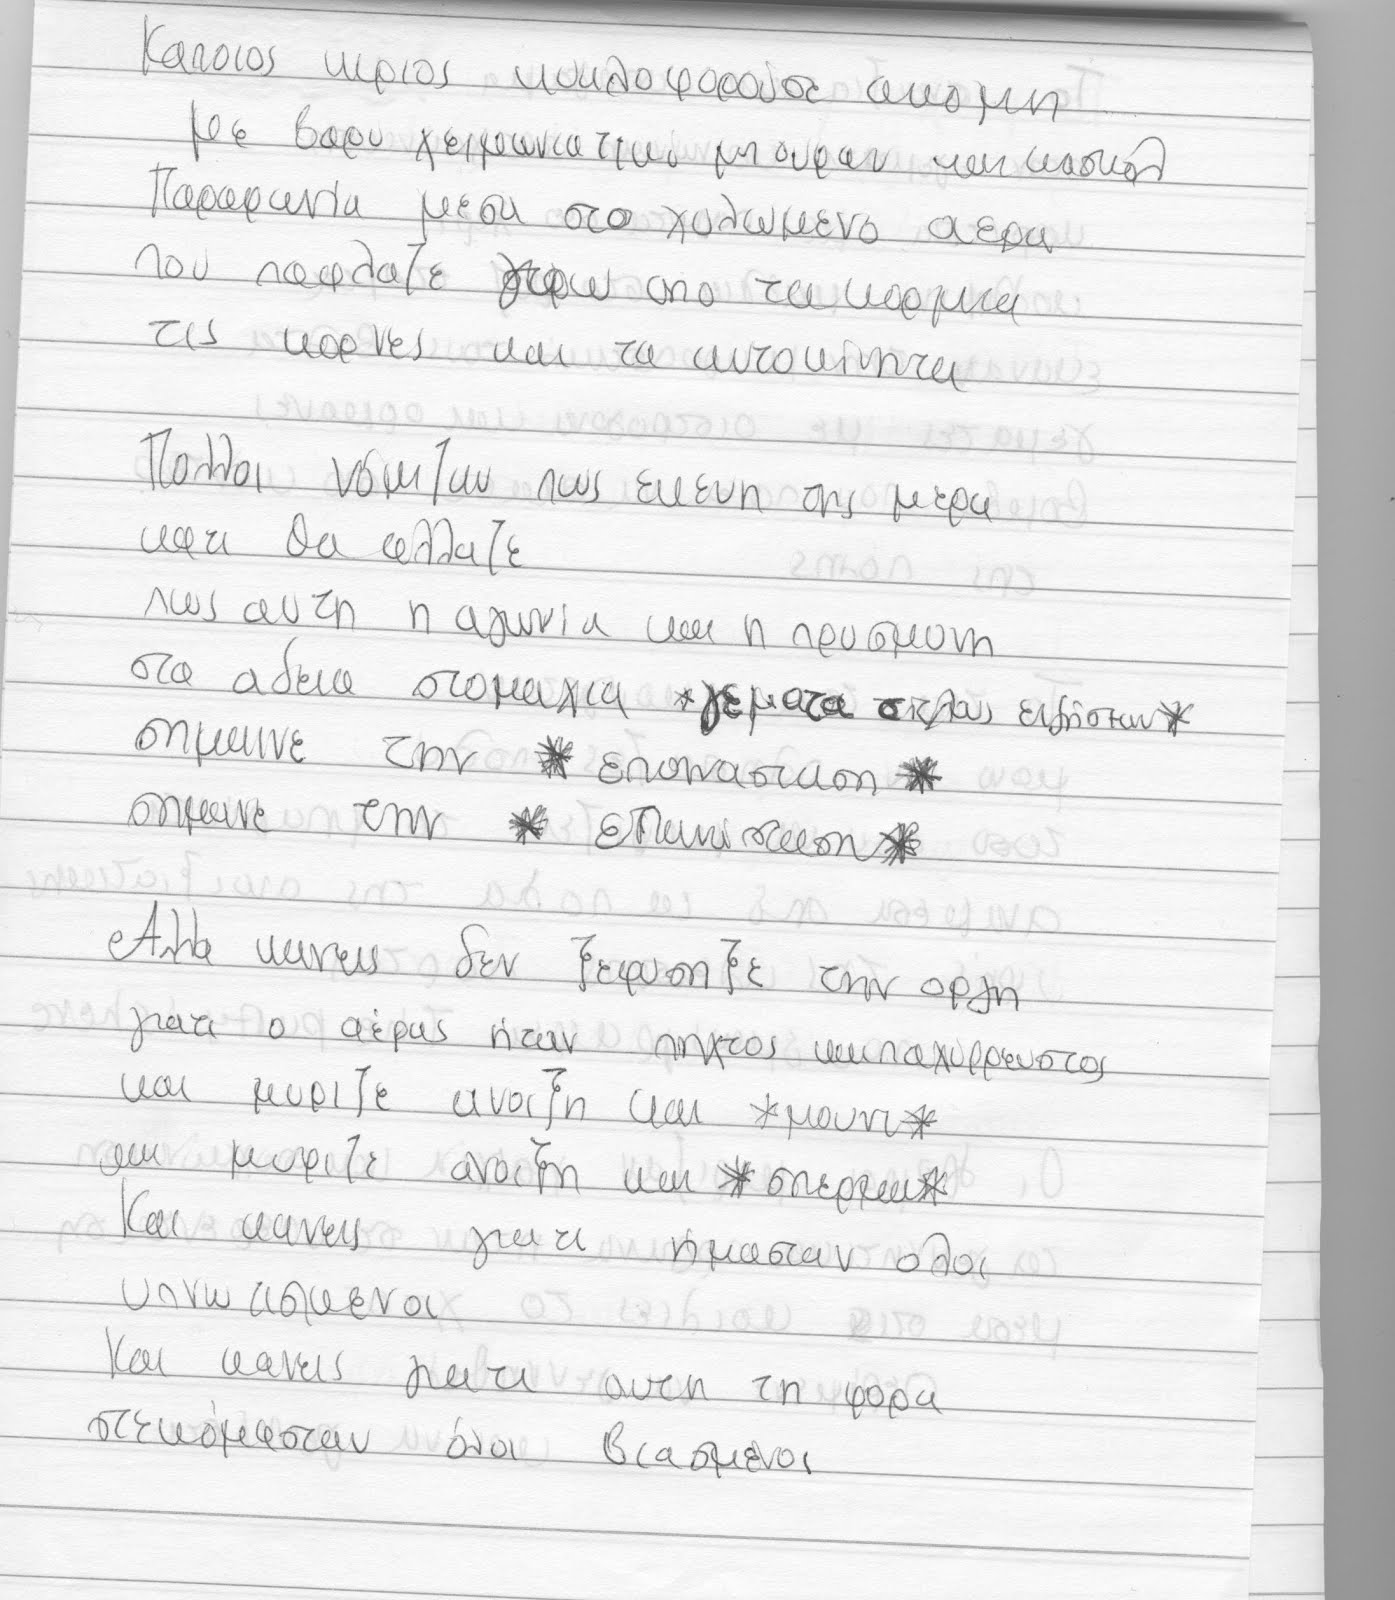 Καποιος κυριος κυκλοφορούσε ακομη
με βαρυ χειμωνιατικο μπουφαν και κασκολ
Παραφωνία μεσα στο χυλωμενο αερα
που παφλαζε γυρω απο τα κορμια
τις κορνες και τα αυτοκίνητα
Πολλοι νόμιζαν πως εκεινη της μερα
κατι θα αλλαζε
πως αυτη η αγωνία και η προσμονη
στα αδεια στομαχια *γεματα
σημαινε την *επανασταση*
σημαινε την *επανάσταση*
Αλλα κανεις δεν ξεφυσηξε την οργη
γιατι ο αέρας ήταν πηχτος και παχύρρευστος
και μυριζε ανοιξη και *μουνι*
και μυριζε ανοιξη και *σπερμα*
Και κανεις γιατι ήμασταν ολοι
υπνωτισμενοι
Και κανεις γιατι αυτη τη φορα
στεκόμασταν όλοι βιασμένοι